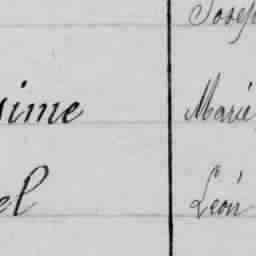 Joseph
sime Marie
el Léon